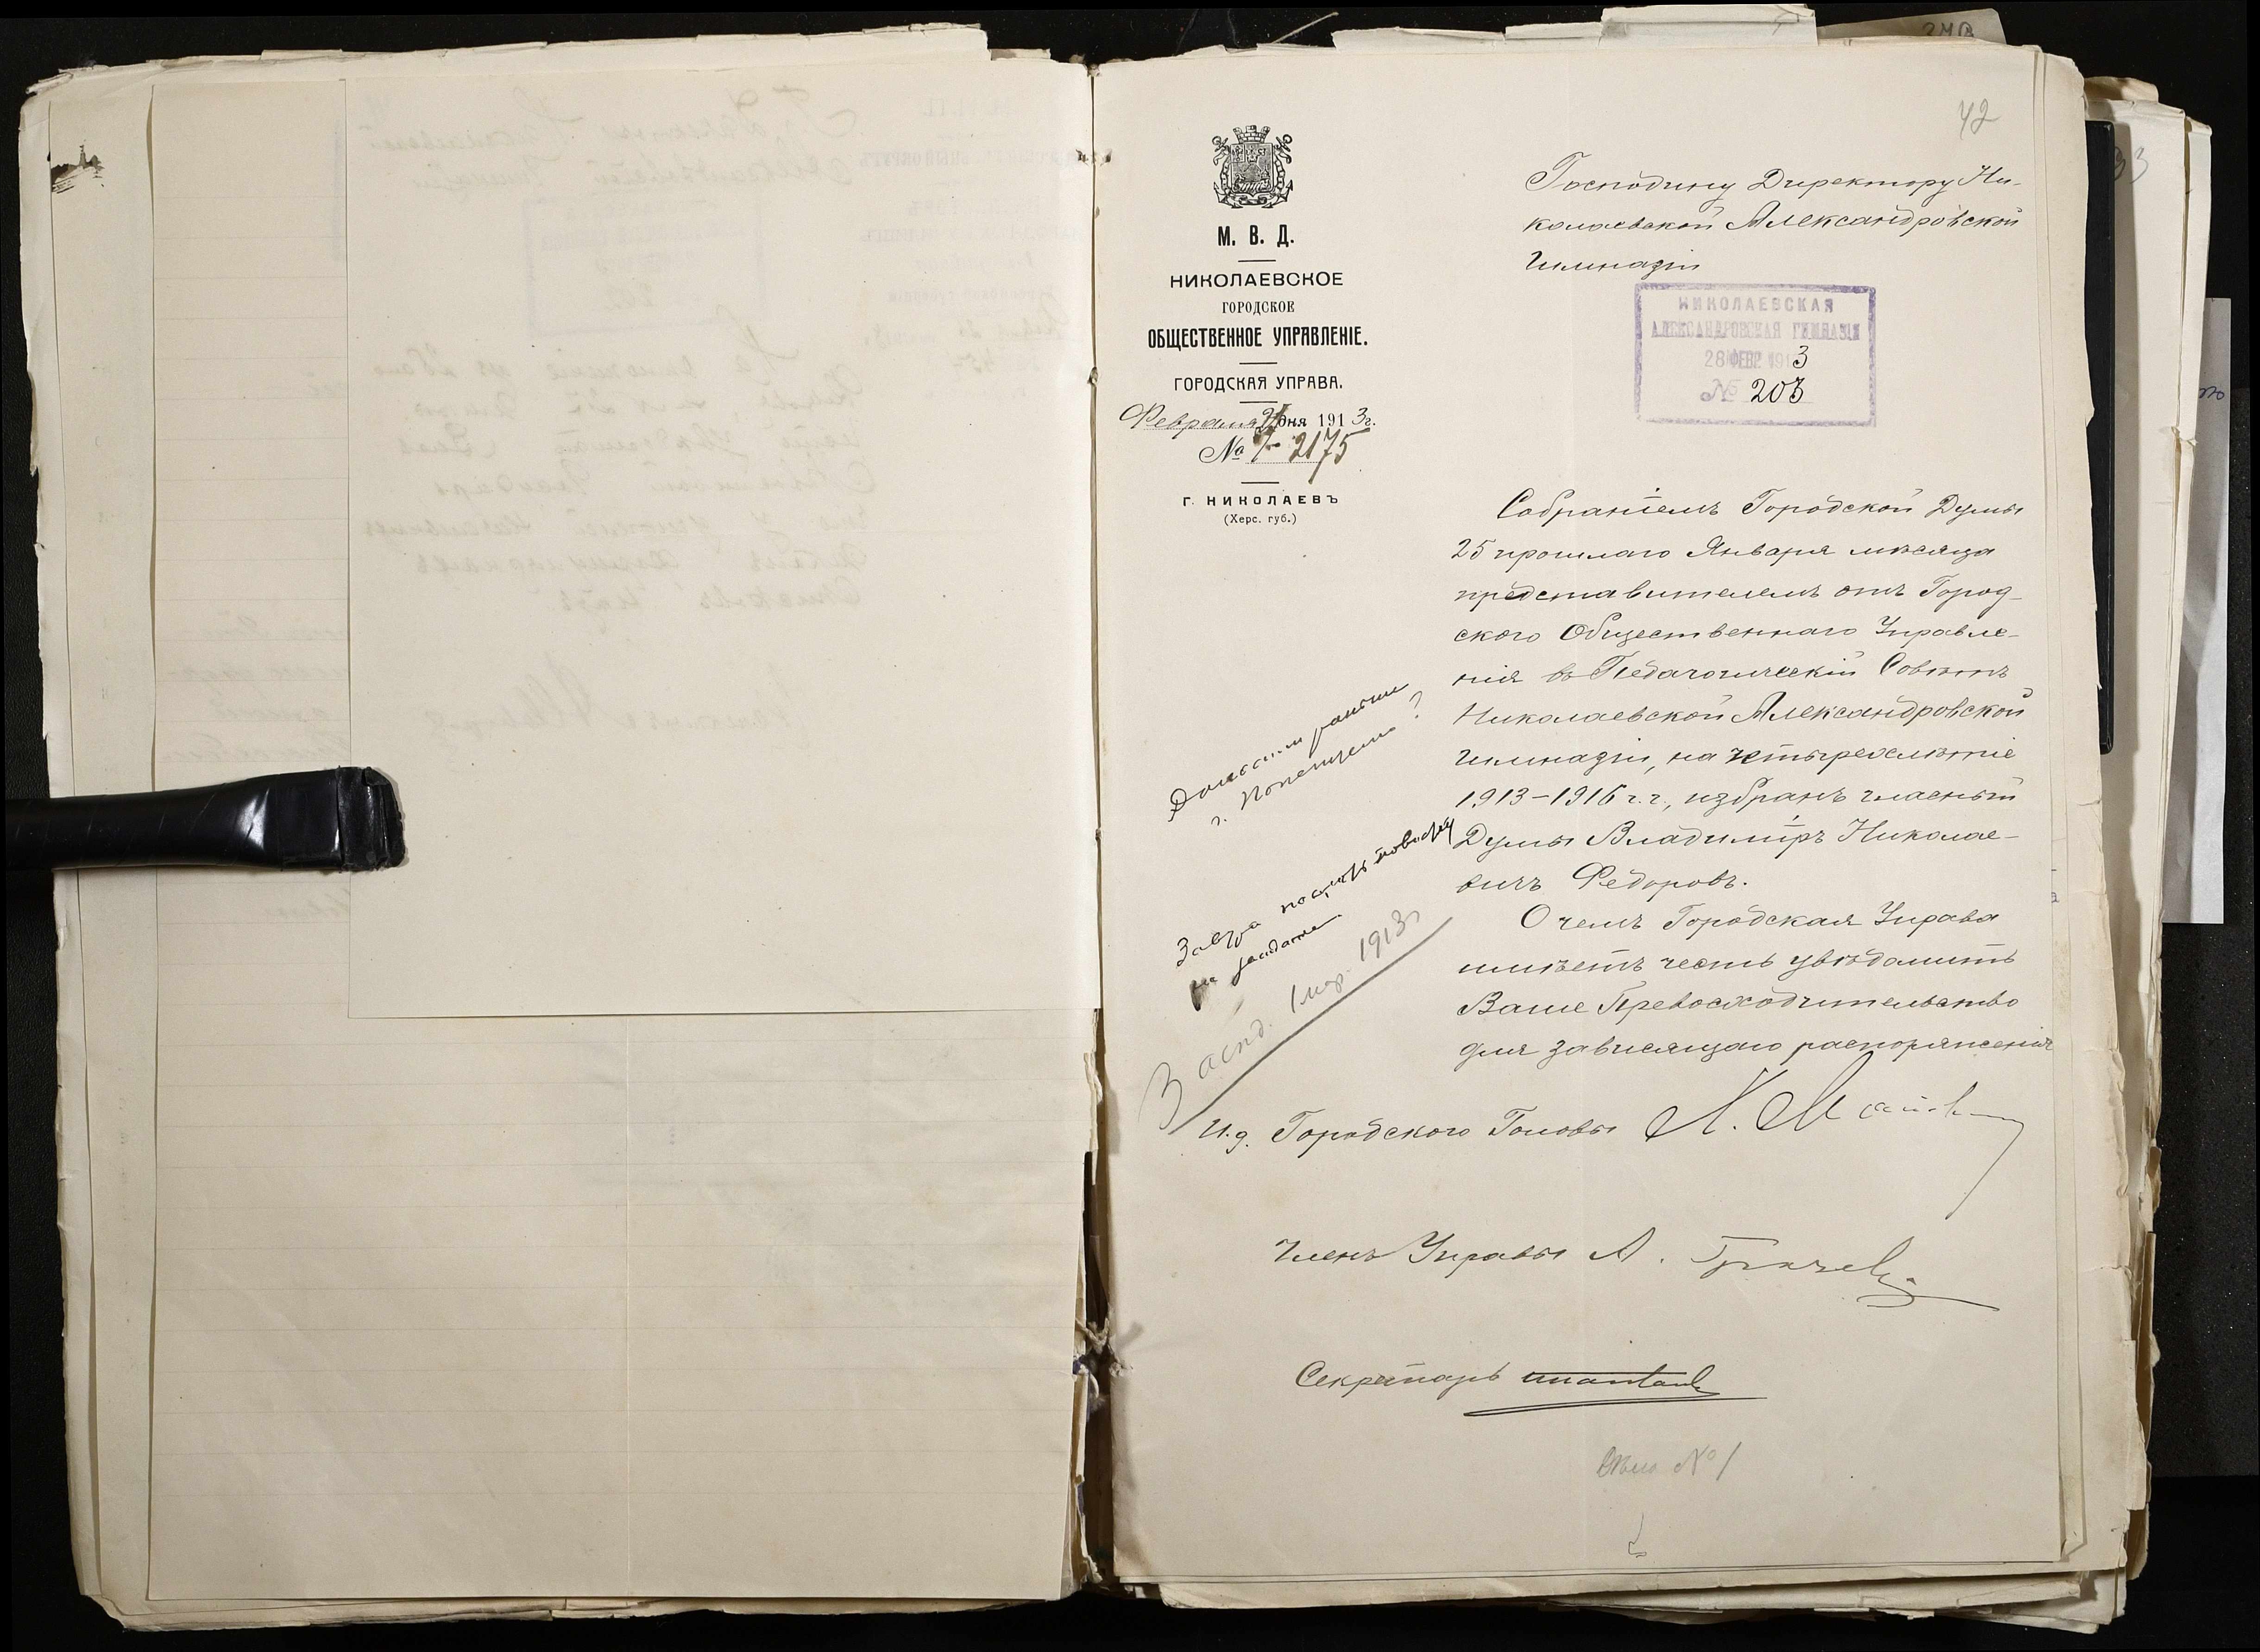 42
М. В. Д.
НИКОЛАЕВСКОЕ
ГОРОДСКОЕ
ОБЩЕСТВЕННОЕ УПРАВЛЕНІЕ.
ГОРОДСКАЯ УПРАВА.
Февраля дня 1913 г.
№ 2175
Г. НИКОЛАЕВЪ
(Херс. губ.)
Господину Директору Ни-
колаевской Александровской
Гимназіи
НИКОЛАЕВСКАЯ
АЛЕКСАНДРОВСКАЯ ГИМНАЗІЯ
28 ФЕВР 1913
№ 203
Собраніемъ Городской Думы
25 прошлаго Января мѣсяца
представителемъ отъ Город-
ского Общественнаго Управле-
нія въ Педагогическій Совѣтъ
Николаевской Александровской
гимназіи, на четырехлѣтіе
1913-1916 г.г., избранъ гласный
Думы Владиміръ Николае-
вичъ Федоровъ.
О чемъ Городская Управа
имѣетъ честь увѣдомить
Ваше Превосходительство
для зависящаго распоряженія
раньше
г. ?
Завтра повѣстку
на
Засѣд. 1 мар. 1913 г.
И.д. Городского Головы Н.
Членъ Управы А. Грачевъ
Секретарь
№ 1